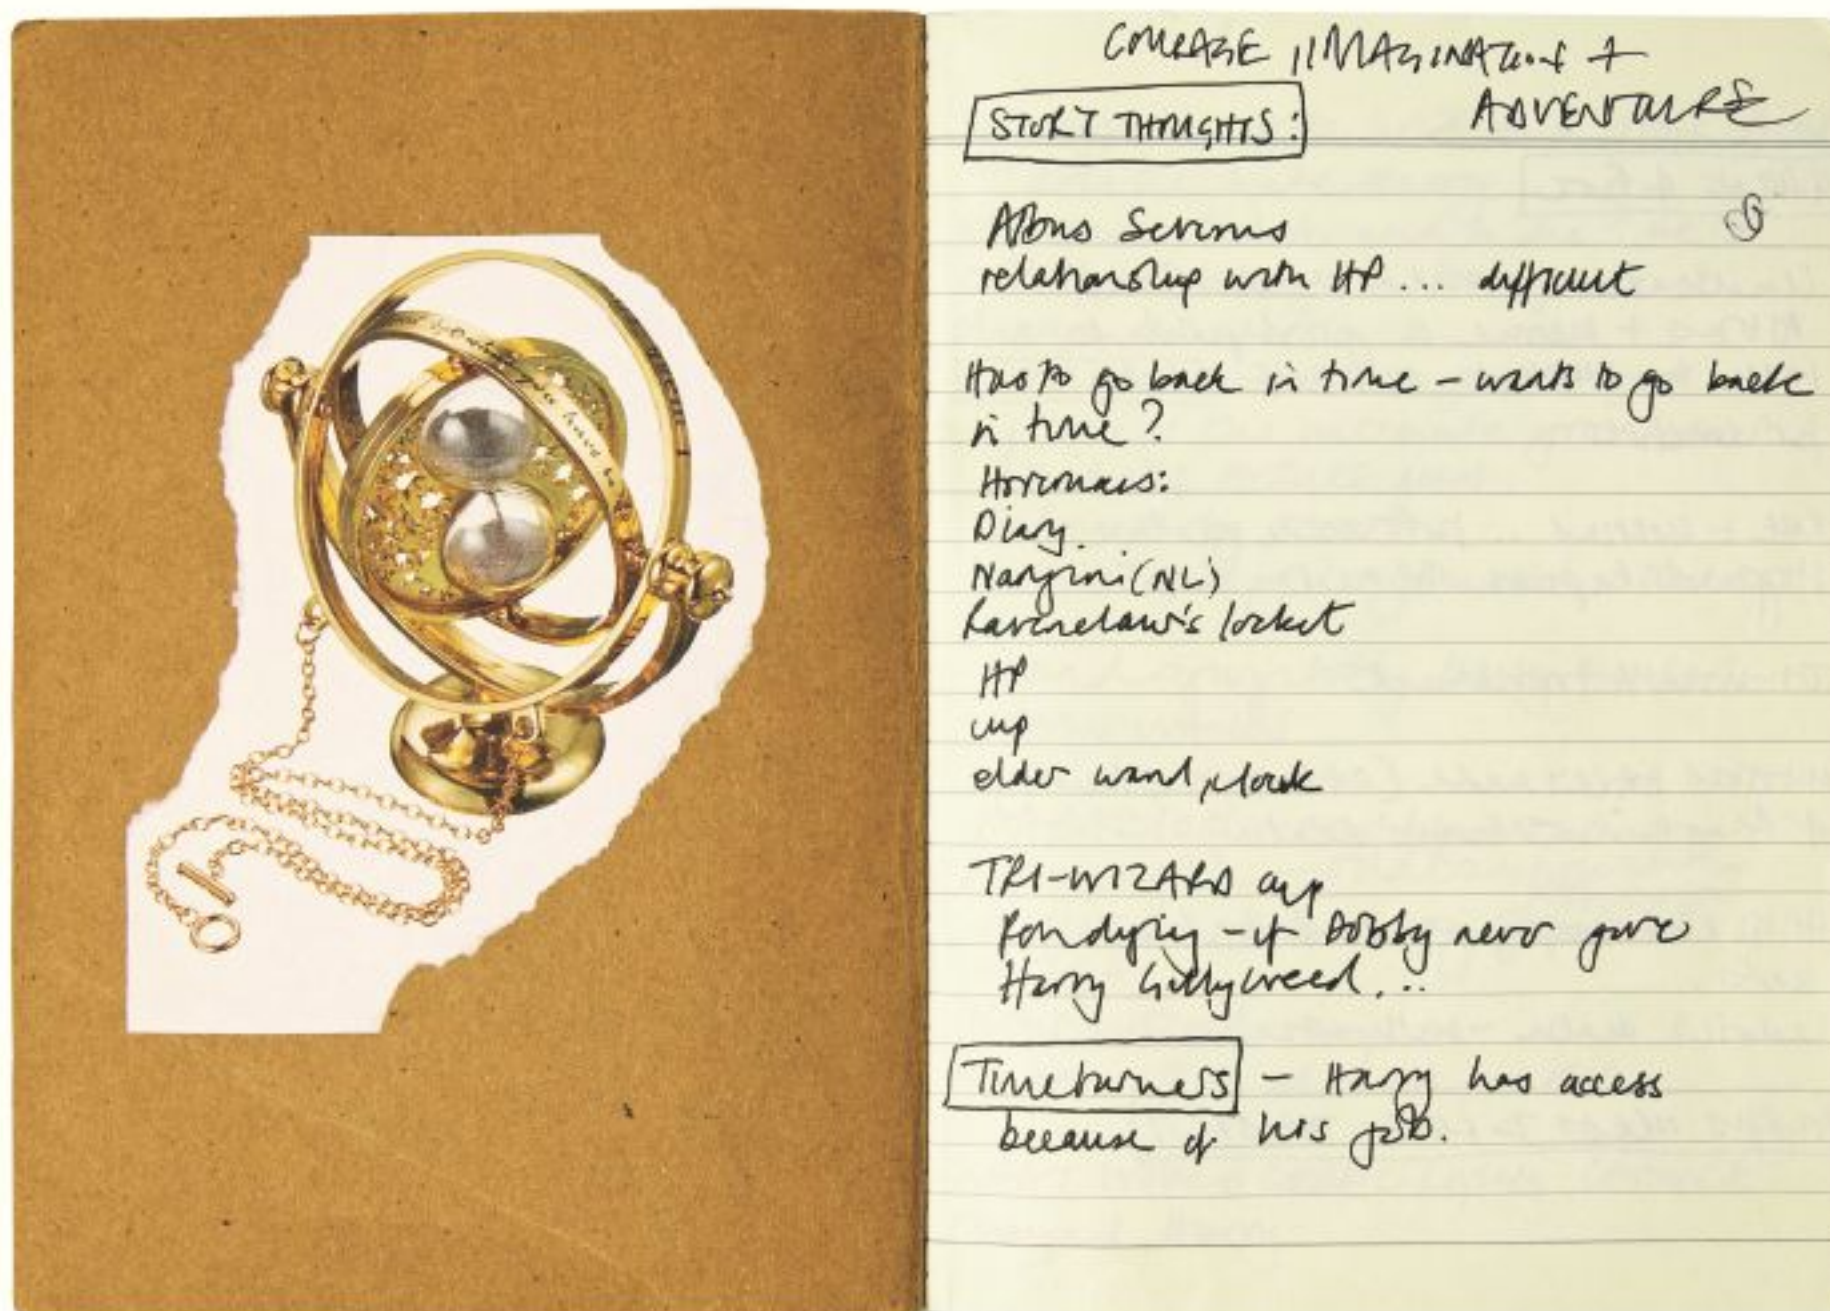 COURAGE, IMAGINATION +
ADVENTURE
STORY THOUGHTS:
Albus Severus
relationship with HP... difficult
Has to go back in time - wants to go back
in time?
Horcruxes:
Diary.
Nangini (NL)
Ravenclaw's locket
HP
cup
elder wand, cloak
TRI-WIZARD cup
Ron dying - if Dobby never gave
Harry Gillyweed...
Timeturners - Harry has access
because of his job.